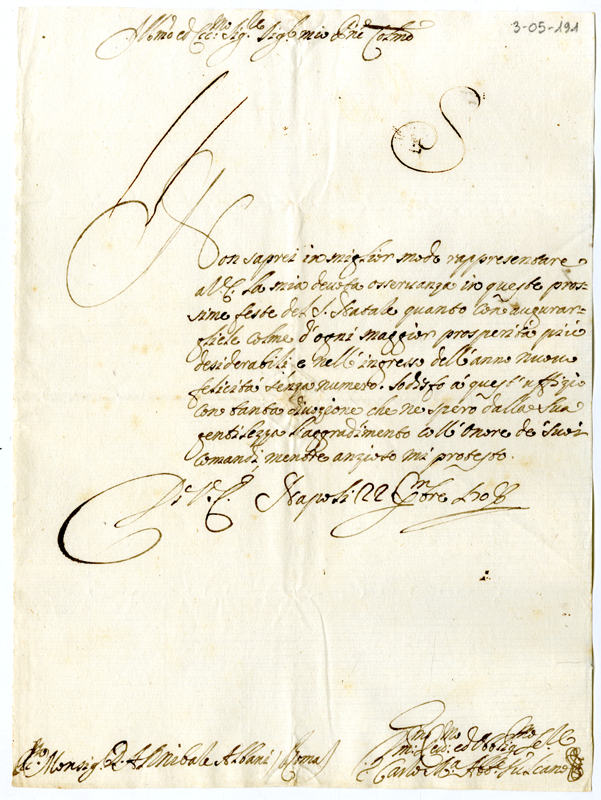 3-05-191
Ill.mo ed Ecc.mo Sig.re Sig.re mio P.ne Colmo
Non saprei in miglior modo rappresentare
a V.E. la mia devota osservanza in queste pros-
sime feste del S. Natale quanto con augurar-
gliele colme d'ogni maggior prosperità più
desiderabili e nell'ingresso dell'anno nuovo
felicità senza numero. Sodisfo a quest'uffizio
con tanta divozione che ne spero dalla sua
gentilezza l'aggradimento coll'Onore de suoi
Comandi, mentre anzioso mi protesto.
Di V.E. Napoli 22 Xmbre 1708
Monsig.r D. Annibale Albani (Roma)
Carlo M.a